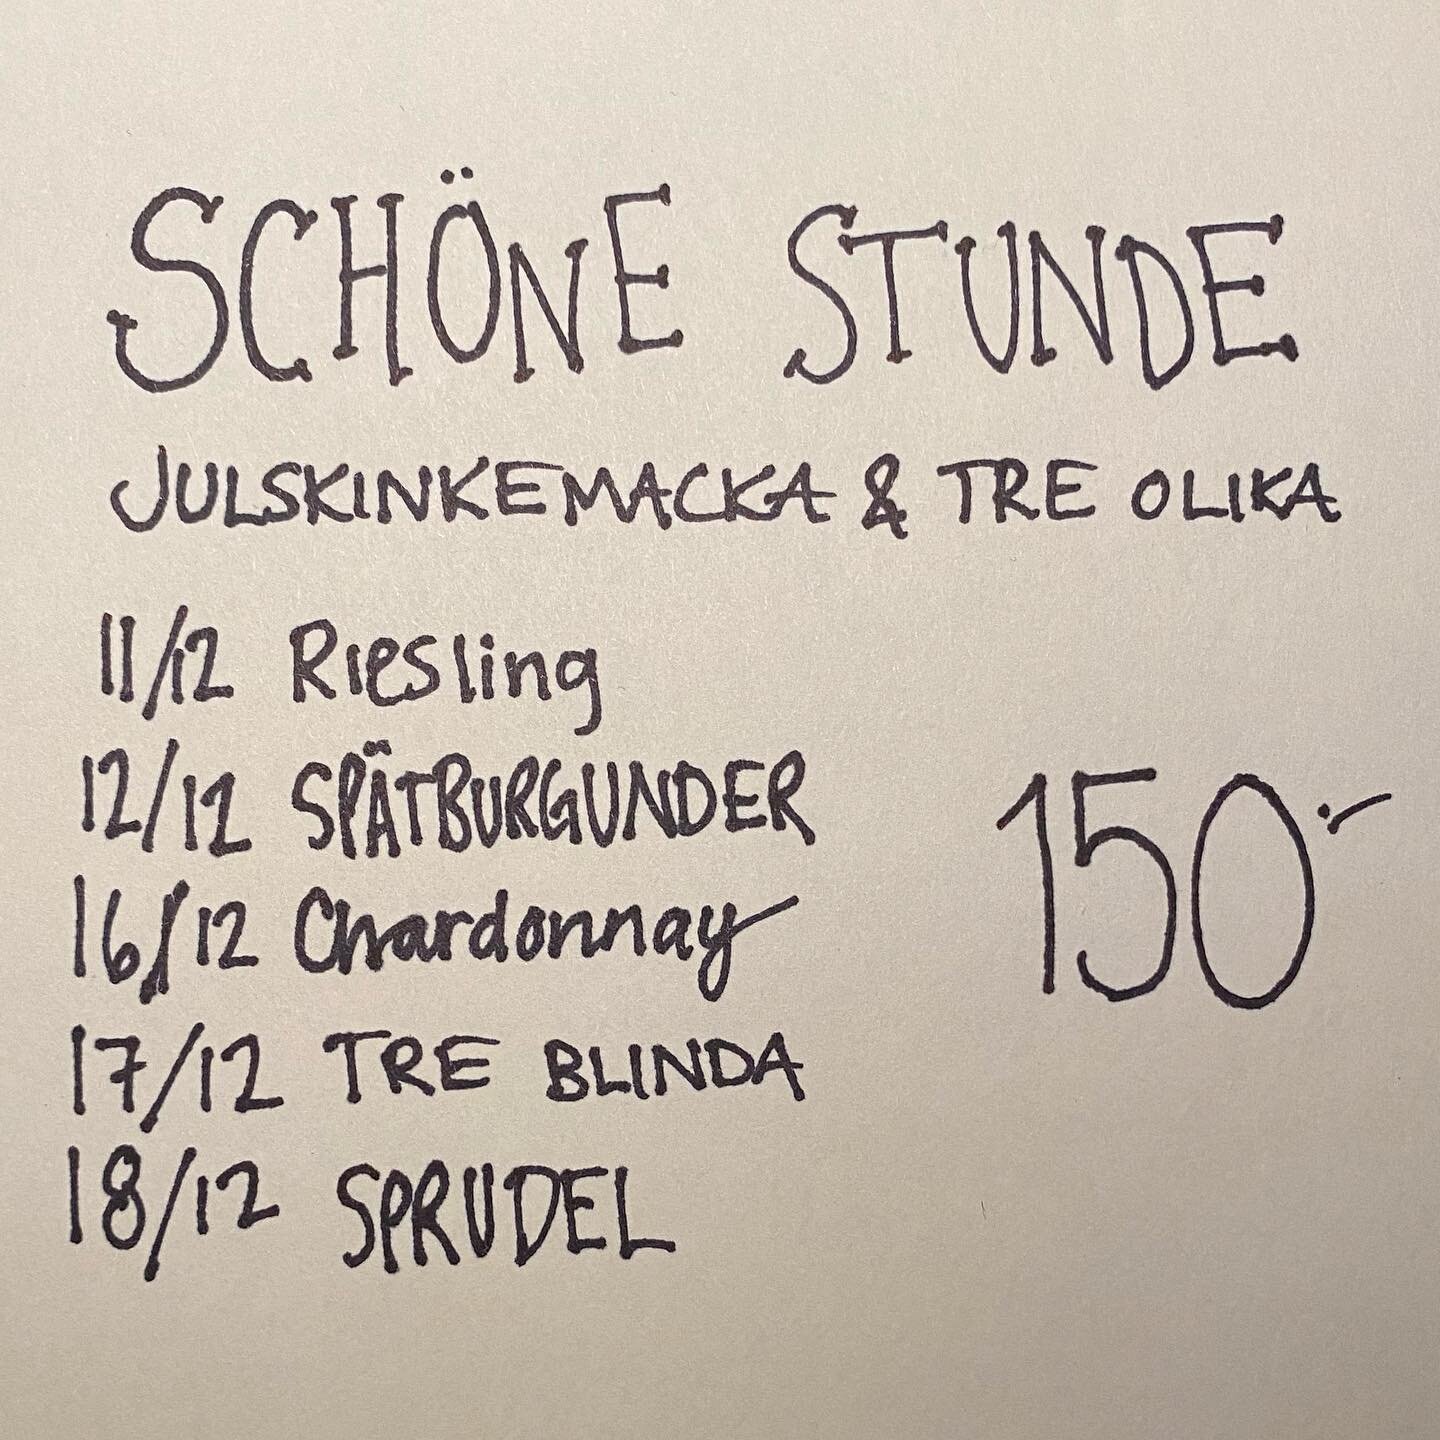 SCHÖNE STUNDE
JULSKINKEMACKA & TRE OLIKA
11/12 Riesling
12/12 SPÄTBURGUNDER
16/12 Chardonnay
17/12 TRE BLINDA
18/12 SPRUDEL
150:-